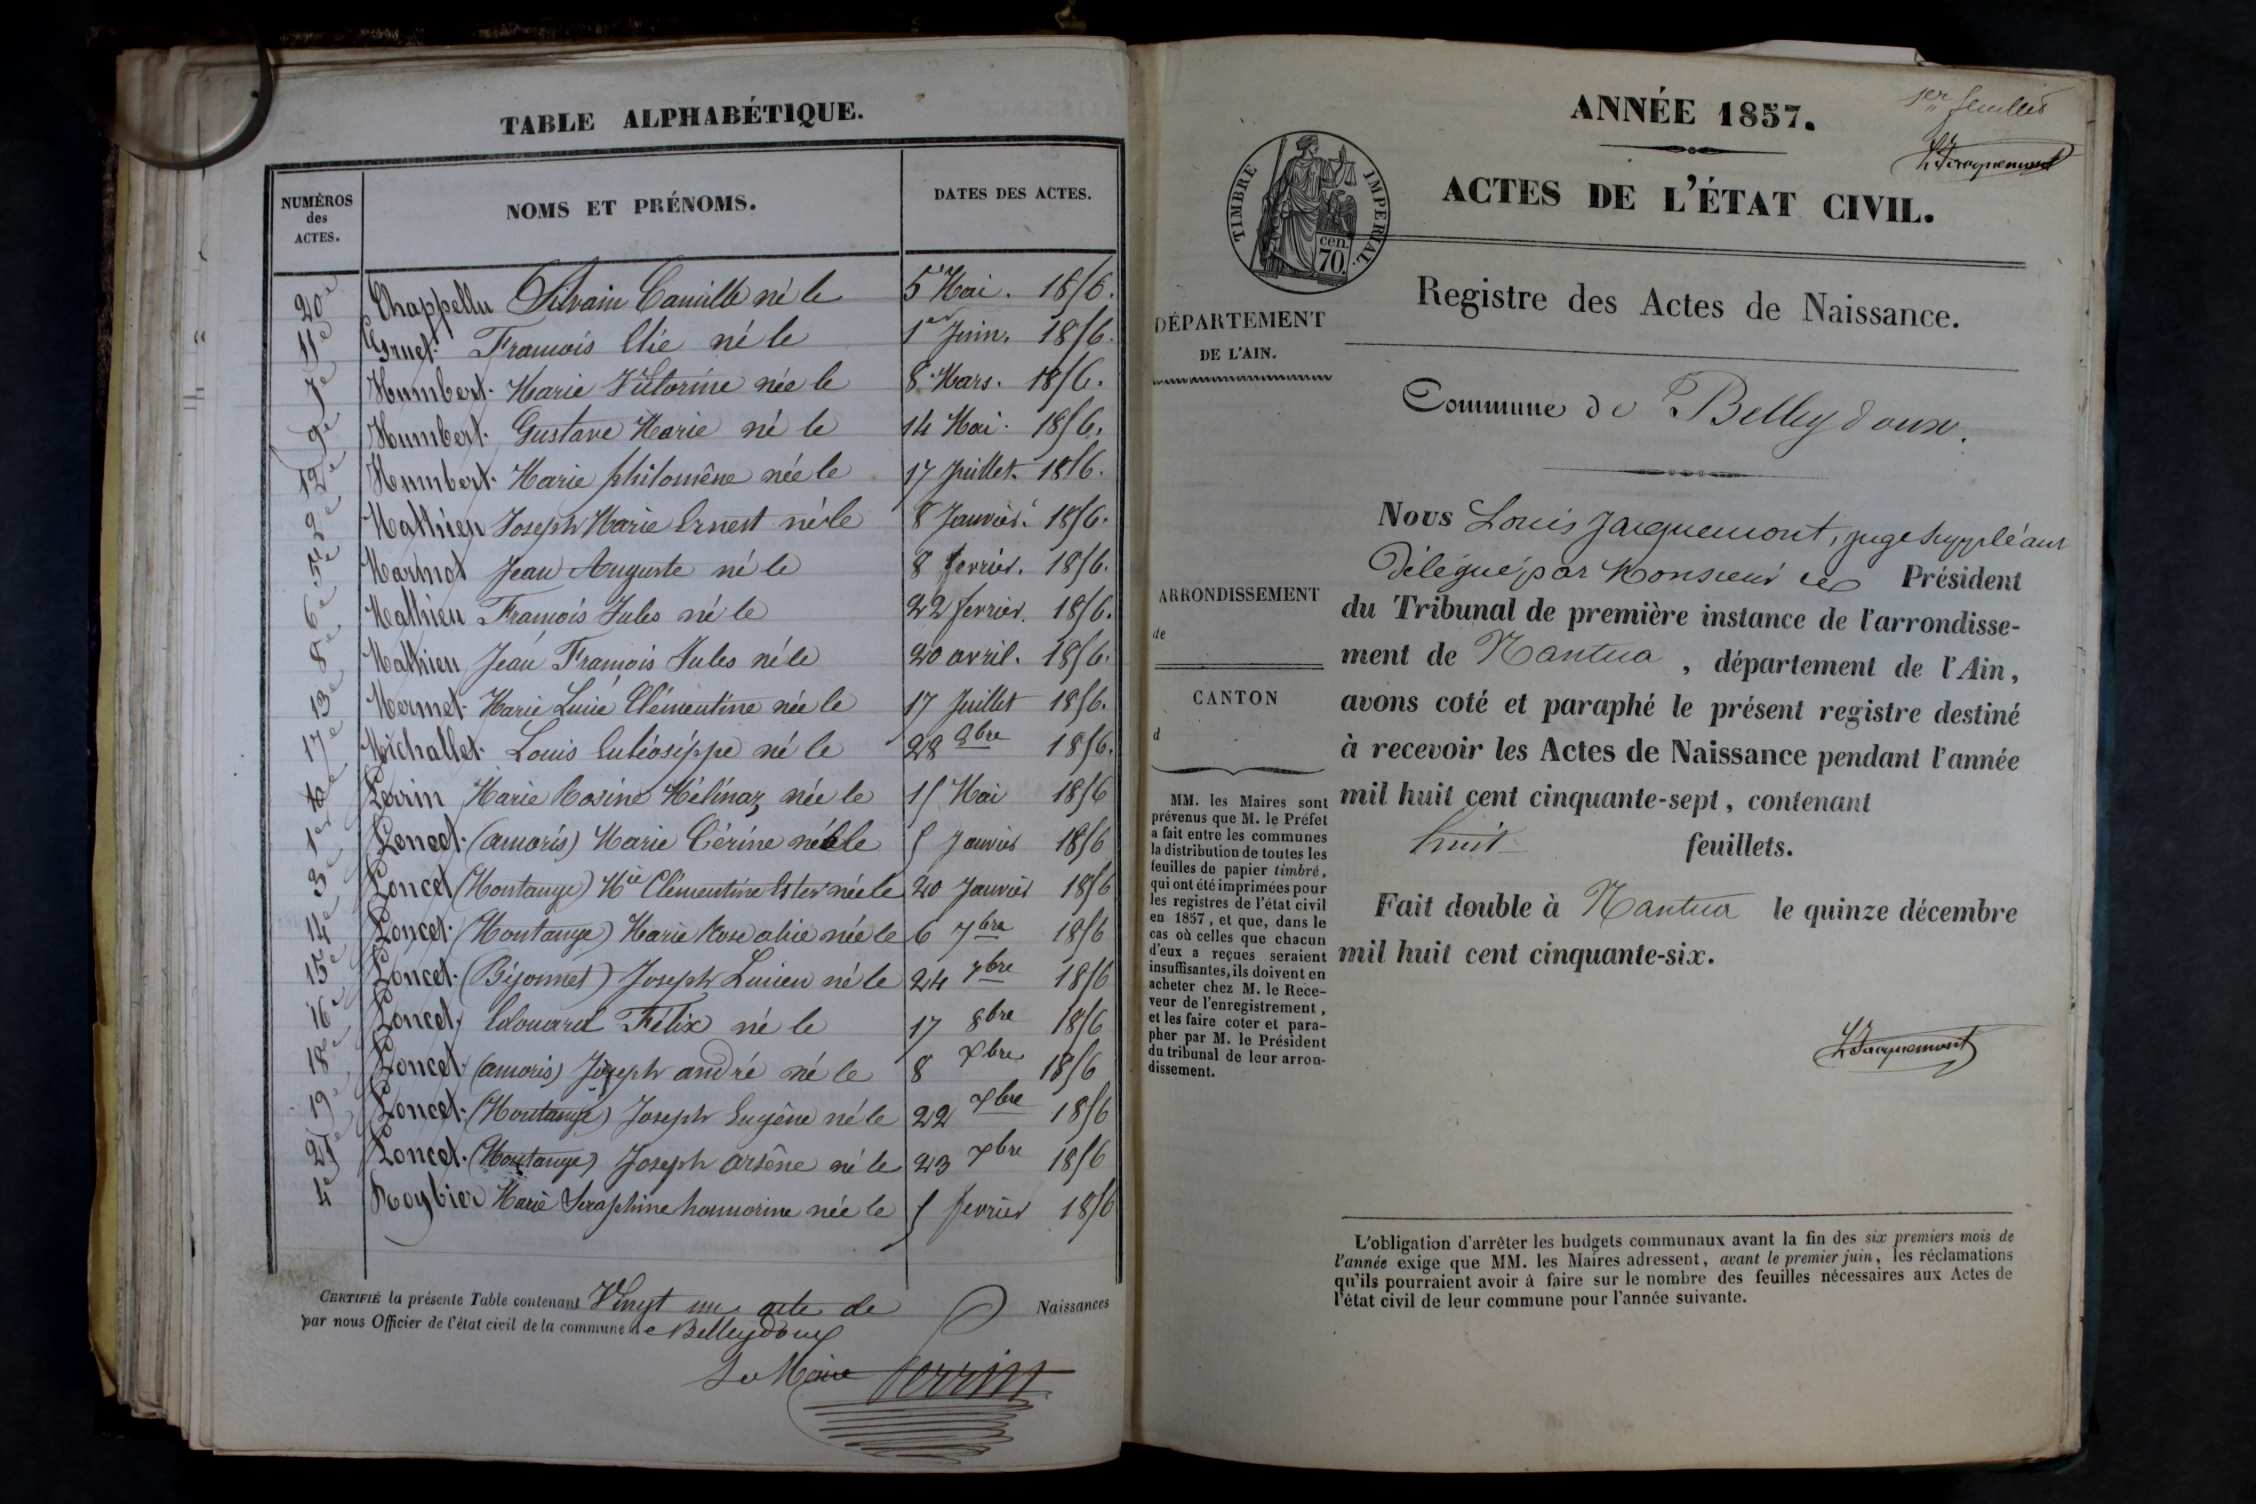 TABLE ALPHABÉTIQUE.
NUMÉROS des ACTES.
NOMS ET PRÉNOMS.
DATES DES ACTES.
20e Chappellu Silvain Camille né le 5 Mai. 1856.
11e Gruet. François Elie né le 1er Juin. 1856.
7e Humbert. Marie Victorine née le 8. Mars. 1856.
9e Humbert. Gustave Marie né le 14 Mai. 1856.
12e Humbert. Marie philomène née le 17 Juillet. 1856.
2e Mathieu Joseph Marie Ernest né le 8 Janvier. 1856.
5e Marinot Jean Auguste né le 8 fevrier. 1856.
6e Mathieu François Jules né le 22 fevrier. 1856.
8e Mathieu Jean François Jules né le 20 avril. 1856.
13e Mermet. Marie Lucie Clémentine née le 17 Juillet 1856.
17e Michallet. Louis né le 28 8bre 1856.
Perrin Marie Rosine Mélinaz née le 15 Mai 1856
1er Poncet. (amoris) Marie Cérine née le 5 Janvier 1856
3e Poncet (Montange) Mie Clémentine Ester née le 20 Janvier 1856
14e Poncet. (Montange) Marie Rose alie née le 6 7bre 1856
15e Poncet. (Bijonnet) Joseph Lucien né le 24 7bre 1856
16e Poncet. Edouard Félix né le 17 8bre 1856
18e Poncet (amoris) Joseph andré né le 8 Xbre 1856
19e Poncet. (Montange) Joseph Eugène né le 22 Xbre 1856
21e Poncet. (Montange) Joseph arsène né le 23 Xbre 1856
4e Roybier Marie Seraphine honnorine née le 5 fevrier 1856
CERTIFIÉ la présente Table contenant Vingt un acte de Naissances
par nous Officier de l'état civil de la commune de Belleydoux
Le Maire Perrin
1er feuillet
L Jacquemont
ANNÉE 1857.
ACTES DE L'ÉTAT CIVIL.
TIMBRE IMPERIAL.
cen. 70
Registre des Actes de Naissance.
DÉPARTEMENT
DE L'AIN.
Commune de Belleydoux.
ARRONDISSEMENT
de
CANTON
d
MM. les Maires sont
prévenus que M. le Préfet
a fait entre les communes
la distribution de toutes les
feuilles de papier timbré,
qui ont été imprimées pour
les registres de l'état civil
en 1857, et que, dans le
cas où celles que chacun
d'eux a reçues seraient
insuffisantes, ils doivent en
acheter chez M. le Rece-
veur de l'enregistrement,
et les faire coter et para-
pher par M. le Président
du tribunal de leur arron-
dissement.
Nous Louis Jacquemont, juge suppléant
Délégué par Monsieur le Président
du Tribunal de première instance de l'arrondisse-
ment de Nantua, département de l'Ain,
avons coté et paraphé le présent registre destiné
à recevoir les Actes de Naissance pendant l'année
mil huit cent cinquante-sept, contenant
huit feuillets.
Fait double à Nantua le quinze décembre
mil huit cent cinquante-six.
L Jacquemont
L'obligation d'arrêter les budgets communaux avant la fin des six premiers mois de
l'année exige que MM. les Maires adressent, avant le premier juin, les réclamations
qu'ils pourraient avoir à faire sur le nombre des feuilles nécessaires aux Actes de
l'état civil de leur commune pour l'année suivante.